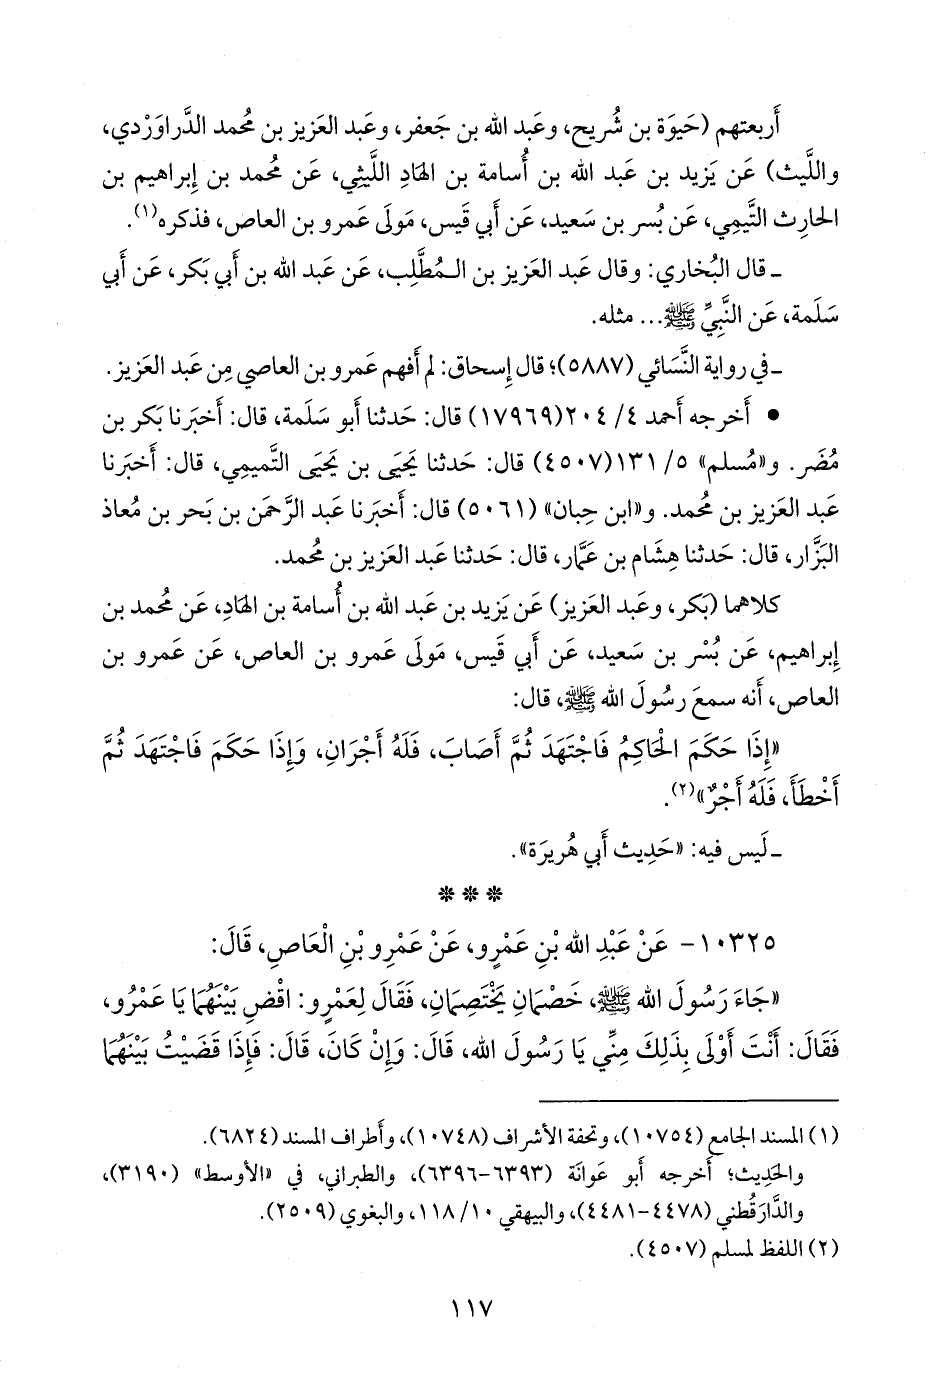 أَربعتهم (حَيوَة بن شُريح، وعَبد الله بن جَعفر، وعَبد العَزيز بن مُحمد الدَّراوَرْدي،
واللَّيث) عَن يَزيد بن عَبد الله بن أُسامة بن الهَادِ اللَّيثِي، عَن مُحمد بن إِبراهيم بن
الحارِث التَّيمِي، عَن بُسر بن سَعيد، عَن أَبي قَيس، مَولَى عَمرو بن العاص، فذكره(١).
ـ قال البُخاري: وقال عَبد العَزيز بن الـمُطَّلِب، عَن عَبد الله بن أَبي بَكر، عَن أَبي
سَلَمة، عَن النَّبيِّ ﷺ... مثله.
ـ في رواية النَّسَائي (٥٨٨٧)؛ قال إِسحاق: لم أَفهم عَمرو بن العاصي مِن عَبد العَزيز.
• أَخرجه أَحمد ٤/ ٢٠٤(١٧٩٦٩) قال: حَدثنا أَبو سَلَمة، قال: أَخبَرنا بَكر بن
مُضَر. و«مُسلم» ٥/ ١٣١(٤٥٠٧) قال: حَدثنا يَحيَى بن يَحيَى التَّميمِي، قال: أَخبَرنا
عَبد العَزيز بن مُحمد. و«ابن حِبان» (٥٠٦١) قال: أَخبَرنا عَبد الرَّحمَن بن بَحر بن مُعاذ
البَزَّار، قال: حَدثنا هِشَام بن عَمَّار، قال: حَدثنا عَبد العَزيز بن مُحمد.
كلاهما (بَكر، وعَبد العَزيز) عَن يَزيد بن عَبد الله بن أُسامة بن الهَادِ، عَن مُحمد بن
إِبراهيم، عَن بُسْر بن سَعيد، عَن أَبي قَيس، مَولَى عَمرو بن العاص، عَن عَمرو بن
العاص، أَنه سمعَ رسُولَ الله ﷺ، قال:
«إِذَا حَكَمَ الحَاكِمُ فَاجْتَهَدَ ثُمَّ أَصَابَ، فَلَهُ أَجْرَانِ، وَإِذَا حَكَمَ فَاجْتَهَدَ ثُمَّ
أَخْطَأَ، فَلَهُ أَجْرٌ»(٢).
ـ لَيس فيه: «حَدِيث أَبي هُريرَة».
* * *
١٠٣٢٥- عَنْ عَبْدِ الله بْنِ عَمْرٍو، عَنْ عَمْرِو بْنِ الْعَاصِ، قَالَ:
«جَاءَ رَسُولَ الله ﷺ، خَصْمَانِ يَخْتَصِمَانِ، فَقَالَ لِعَمْرٍو: اقْضِ بَيْنَهُمَا يَا عَمْرُو،
فَقَالَ: أَنْتَ أَوْلَى بِذَلِكَ مِنِّي يَا رَسُولَ الله، قَالَ: وَإِنْ كَانَ، قَالَ: فَإِذَا قَضَيْتُ بَيْنَهُمَا
(١) المسند الجامع (١٠٧٥٤)، وتحفة الأشراف (١٠٧٤٨)، وأطراف المسند (٦٨٢٤).
والحَدِيث؛ أَخرجه أَبو عَوانَة (٦٣٩٣-٦٣٩٦)، والطبراني، في «الأوسط» (٣١٩٠)،
والدَّارَقُطني (٤٤٧٨-٤٤٨١)، والبيهقي ١٠/ ١١٨، والبغوي (٢٥٠٩).
(٢) اللفظ لمسلم (٤٥٠٧).
١١٧